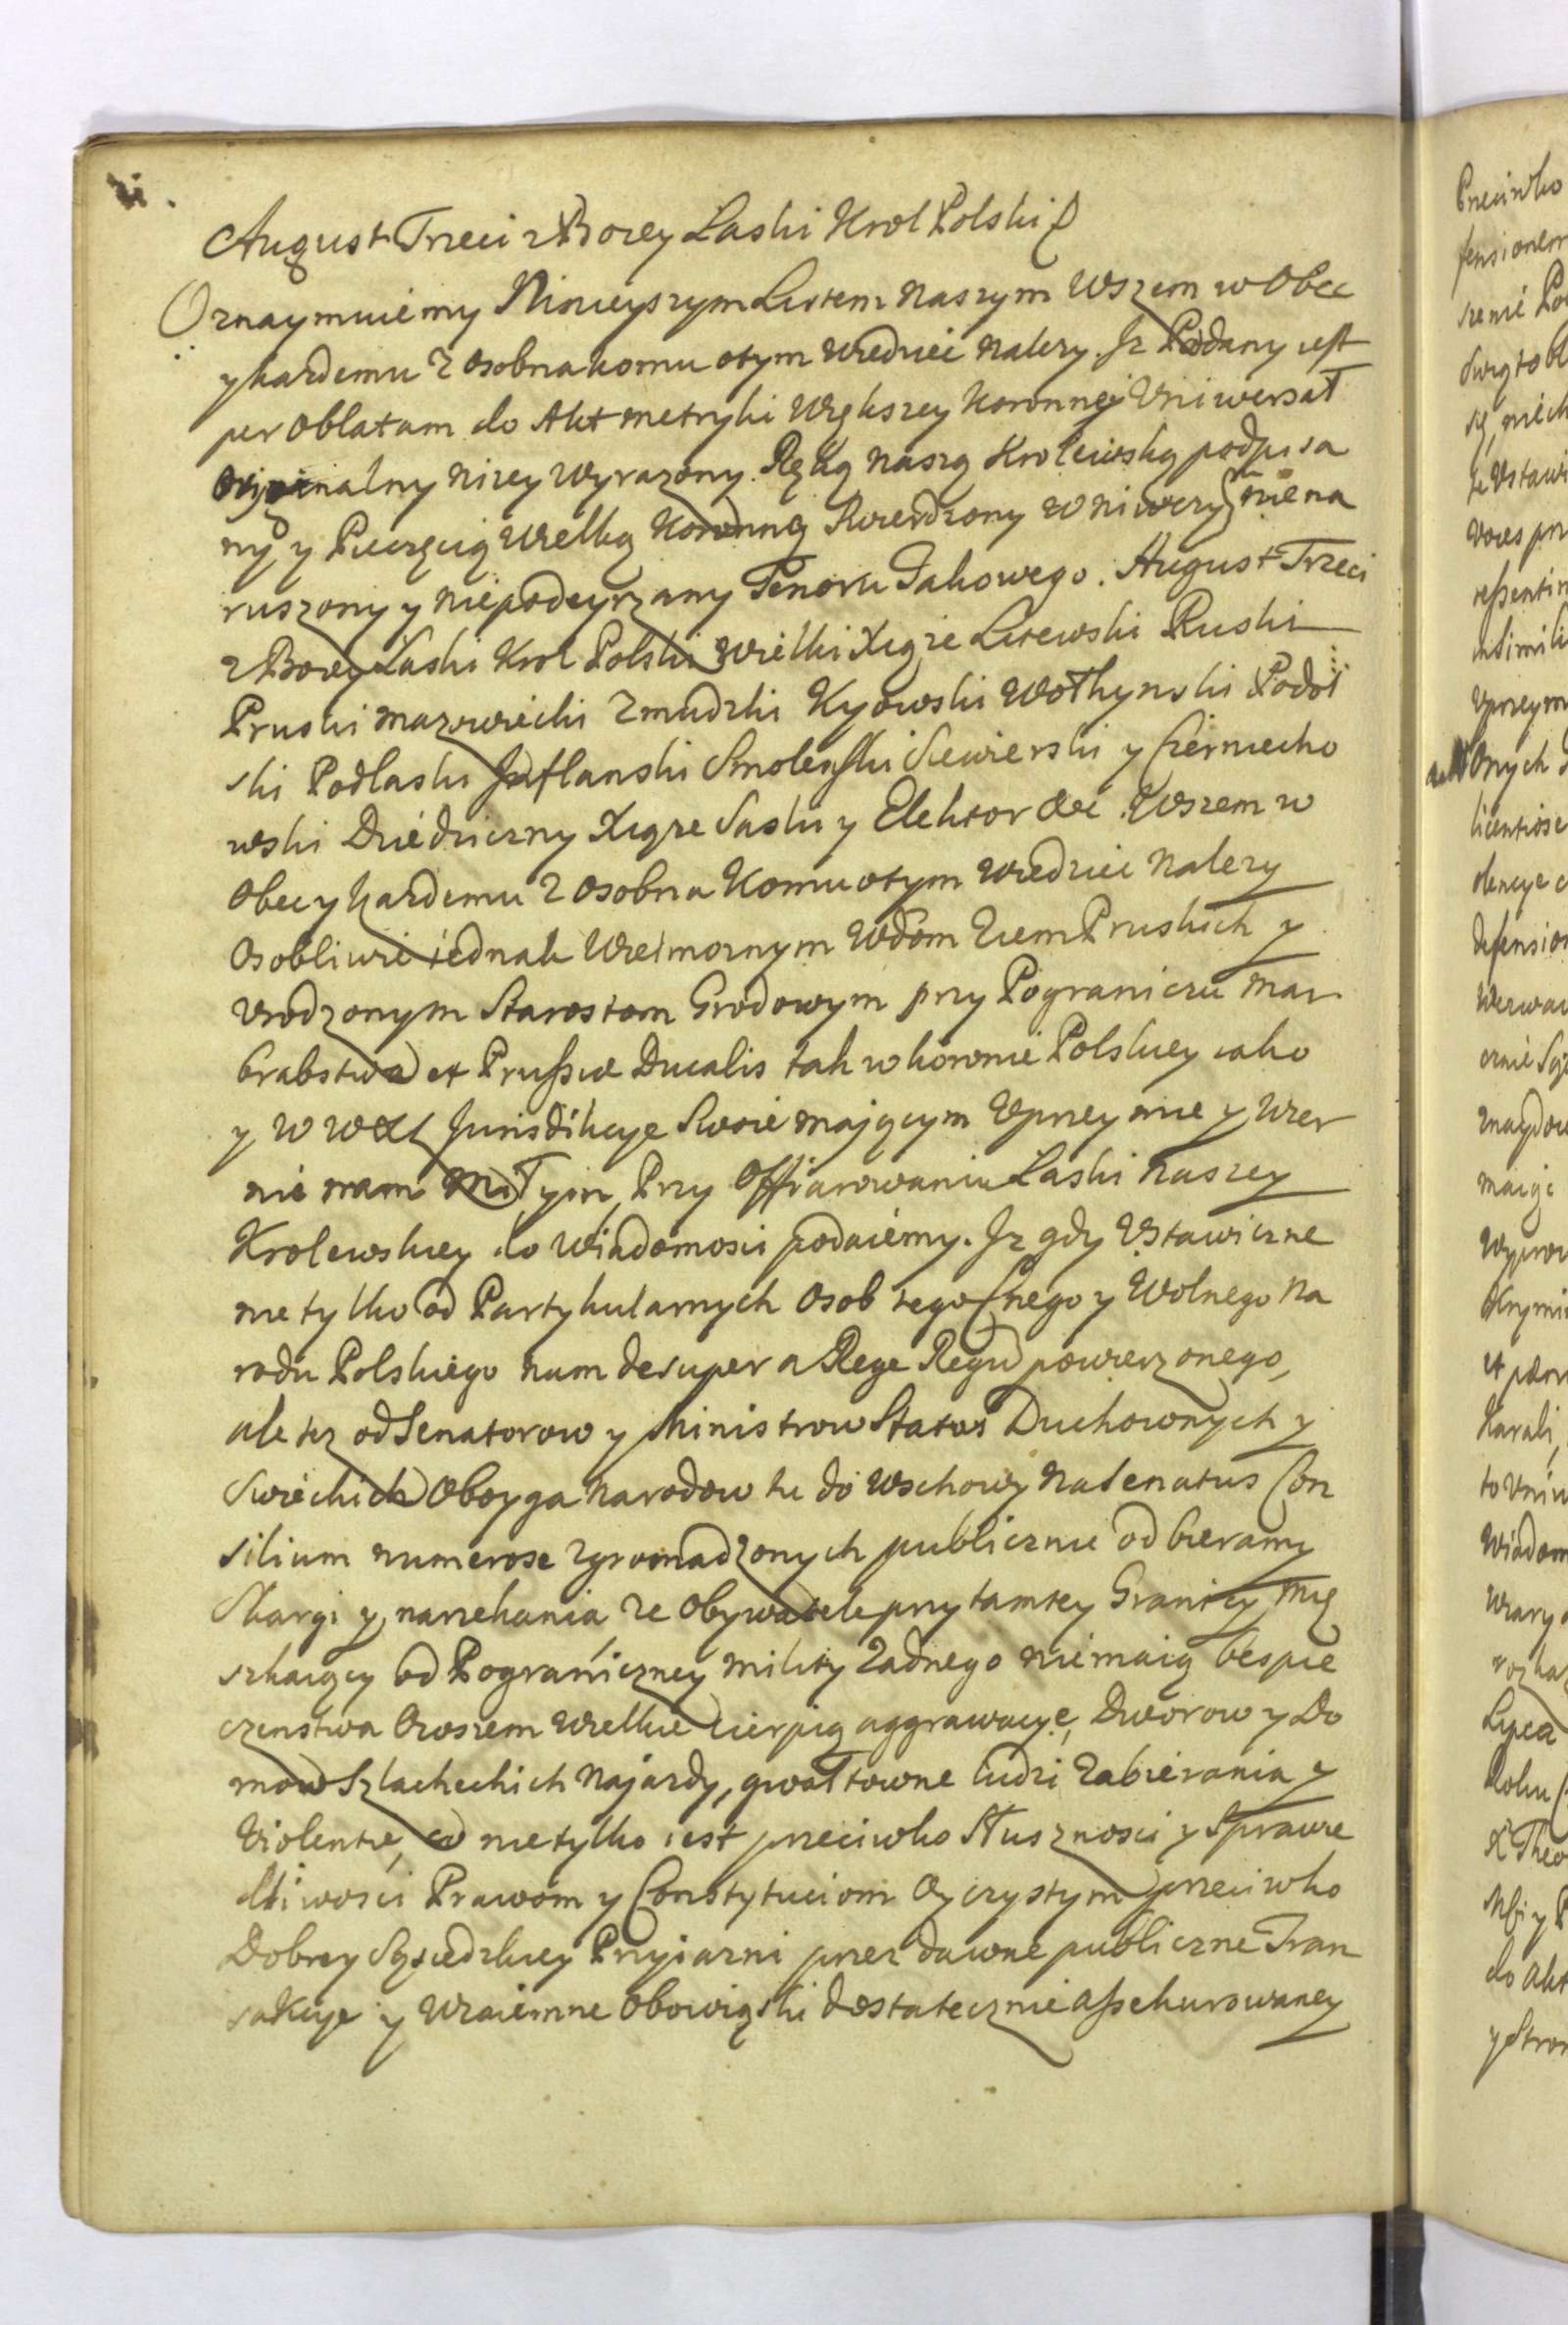 August Trzeci z Bozey Łaski Krol Polski
Oznaymuiemy Ninieyszym Listem Naszym Wszem w Obec
y kazdemu z osobna komu otym wiedziec nalezy. Jz Podany iest
per Oblatam do Akt Metryki Większey Koronney Uniwersał
Oryginalny nizey wyrazony. Ręką naszą Krolewską podpisa
ny y Pieczęcią Wielką Koronną stwierdzony w niwczym nie na
ruszony y niepodeyrzany Tenoru Takowego. August Trzeci
z Bozey Łaski Krol Polski Wielki Xiąze Litewski Ruski
Pruski Mazowiecki Zmudzki Kyowski Wołhynski Podol
ski Podlaski Jnflanski Smolenski Siewierski y Czerniecho
wski Dziedziczny Xiąze Saski y Elektor &c. Wszem w
Obec y kazdemu z osobna Komu otym wiedziec nalezy
Osobliwie iednak Wielmoznym Wdom Ziem Pruskich y
Urodzonym Starostom Grodowym przy Pograniczu Mar
Grabstwa et Prussiæ Ducalis tak w koronie Polskiey iako
y W WXL Jurisdikcye Swoie mającym Uprzeymie y Wier
nie nam Miłym, Przy Offiarowaniu Łaski Naszey
Krolewskiey do Wiadomosci podaiemy. Jz gdy Ustawiczne
nietylko od Partykularnych Osob tego Cnego y Wolnego Na
rodu Polskiego nam desuper a Rege Regu powierzonego,
ale tez od Senatorow y Ministrow Status Duchownych y
Swieckich Oboyga Narodow tu do Wschowy na Senatus Con
silium numerose zgromadzonych publicznie odbieramy
Skargi y narzekania ze Obywatele przy tamtey Granicy mię
szkaiący od Pograniczney Mility Zadnego niemaią bespie
czenstwa Owszem wielkie cierpią aggrawacye, Dworow y Do
mow Szlacheckich Najazdy, gwałtowne ludzi Zabierania y
Violentie, co nietylko iest przeciwko Słusznosci y Sprawie
dliwosci Prawom y Constytuciom Oyczystym przeciwko
Dobrey Sąsiedzkiey Przyiazni przez dawne publiczne Tran
sakcye y Wzaiemne Obowiąski dostatecznie assekurowaney